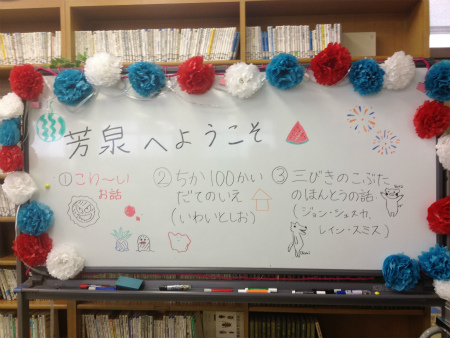 芳泉へようこそ
①こわ〜い
お話
②ちか100かい
だてのいえ
(いわいとしお)
③三びきのこぶた
のほんとうの話
(ジョン・シェスカ、
レイン・スミス)